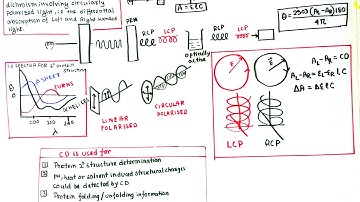 dichroism involving circularly
polarized light, i.e the differential
absorption of left and Right handed
light.
A = ƐLC
θ = 2303 (AL-AR) 180
4π
PEM
RCP
LCP
RCP
LCP
optically
active
CD SPECTRA FOR 2° protein
structure
β SHEET
TURNS
θ
0
200
220
240
λ
LINEAR
POLARISED
CIRCULAR
POLARISED
E
E
AL-AR = CD
ΔA = ΔƐ LC
LCP
RCP
CD is used for
1 Protein 2° structure determination
2 PH, heat or solvent induced structural changes
could be detected by CD
3 Protein folding / unfolding information